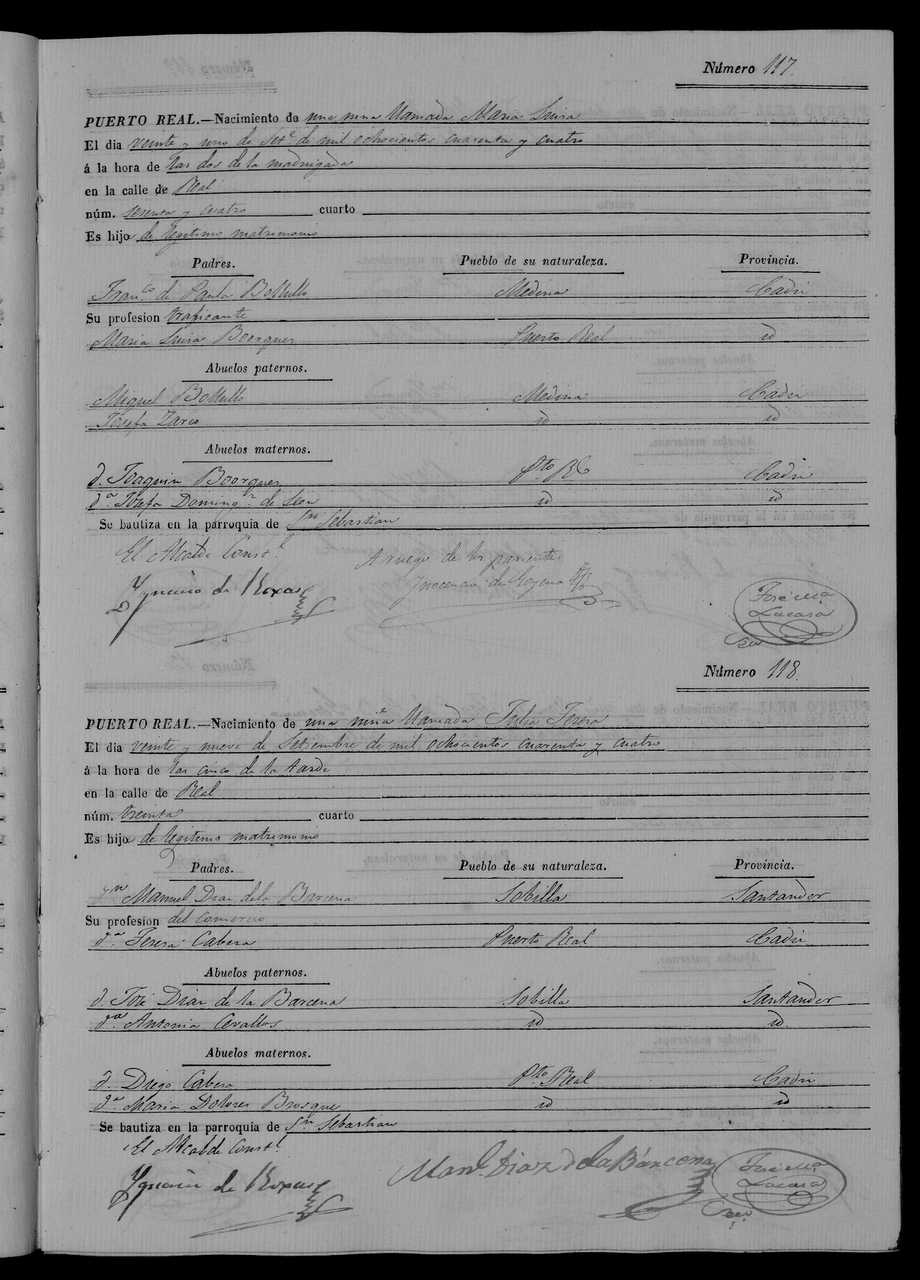 Número 117.
PUERTO REAL.—Nacimiento de una niña llamada Maria Luisa
El dia veinte y uno de Set.e de mil ochocientos cuarenta y cuatro
á la hora de las dos de la madrugada
en la calle de Real
núm. y cuatro cuarto
Es hijo de legitimo matrimonio
Padres. Pueblo de su naturaleza. Provincia.
Fran.co de Paula Medina Cadiz
Su profesion traficante
Maria Luisa Puerto Real id
Abuelos paternos.
Miguel Medina Cadiz
Josefa Zarco id id
Abuelos maternos.
d. Joaquin Pto Rl Cadiz
d.a Josefa Doming.z de Leon id id
Se bautiza en la parroquia de Sn Sebastian
El Alcalde Const.l A ruego de los parientes
Ygnacio de Roxas Jose Ma
Lucasa
Srio
Número 118.
PUERTO REAL.—Nacimiento de una niña llamada Julia Teresa
El dia veinte y nueve de Setiembre de mil ochocientos cuarenta y cuatro
á la hora de las cinco de la tarde
en la calle de Real
núm. treinta cuarto
Es hijo de legitimo matrimonio
Padres. Pueblo de su naturaleza. Provincia.
Dn Manuel Diaz de la Barcena Sobilla Santander
Su profesion del Comercio
d.a Teresa Cabeza Puerto Real Cadiz
Abuelos paternos.
d. José Diaz de la Barcena Sobilla Santander
d.a Antonia Cevallos id id.
Abuelos maternos.
d. Diego Cabeza Pto Real Cadiz
d.a Maria Dolores id id
Se bautiza en la parroquia de Sn Sebastian
El Alcalde Const.l
Ygnacio de Roxas Man.l Diaz de la Bárcena Jose Ma
Lucasa
Srio